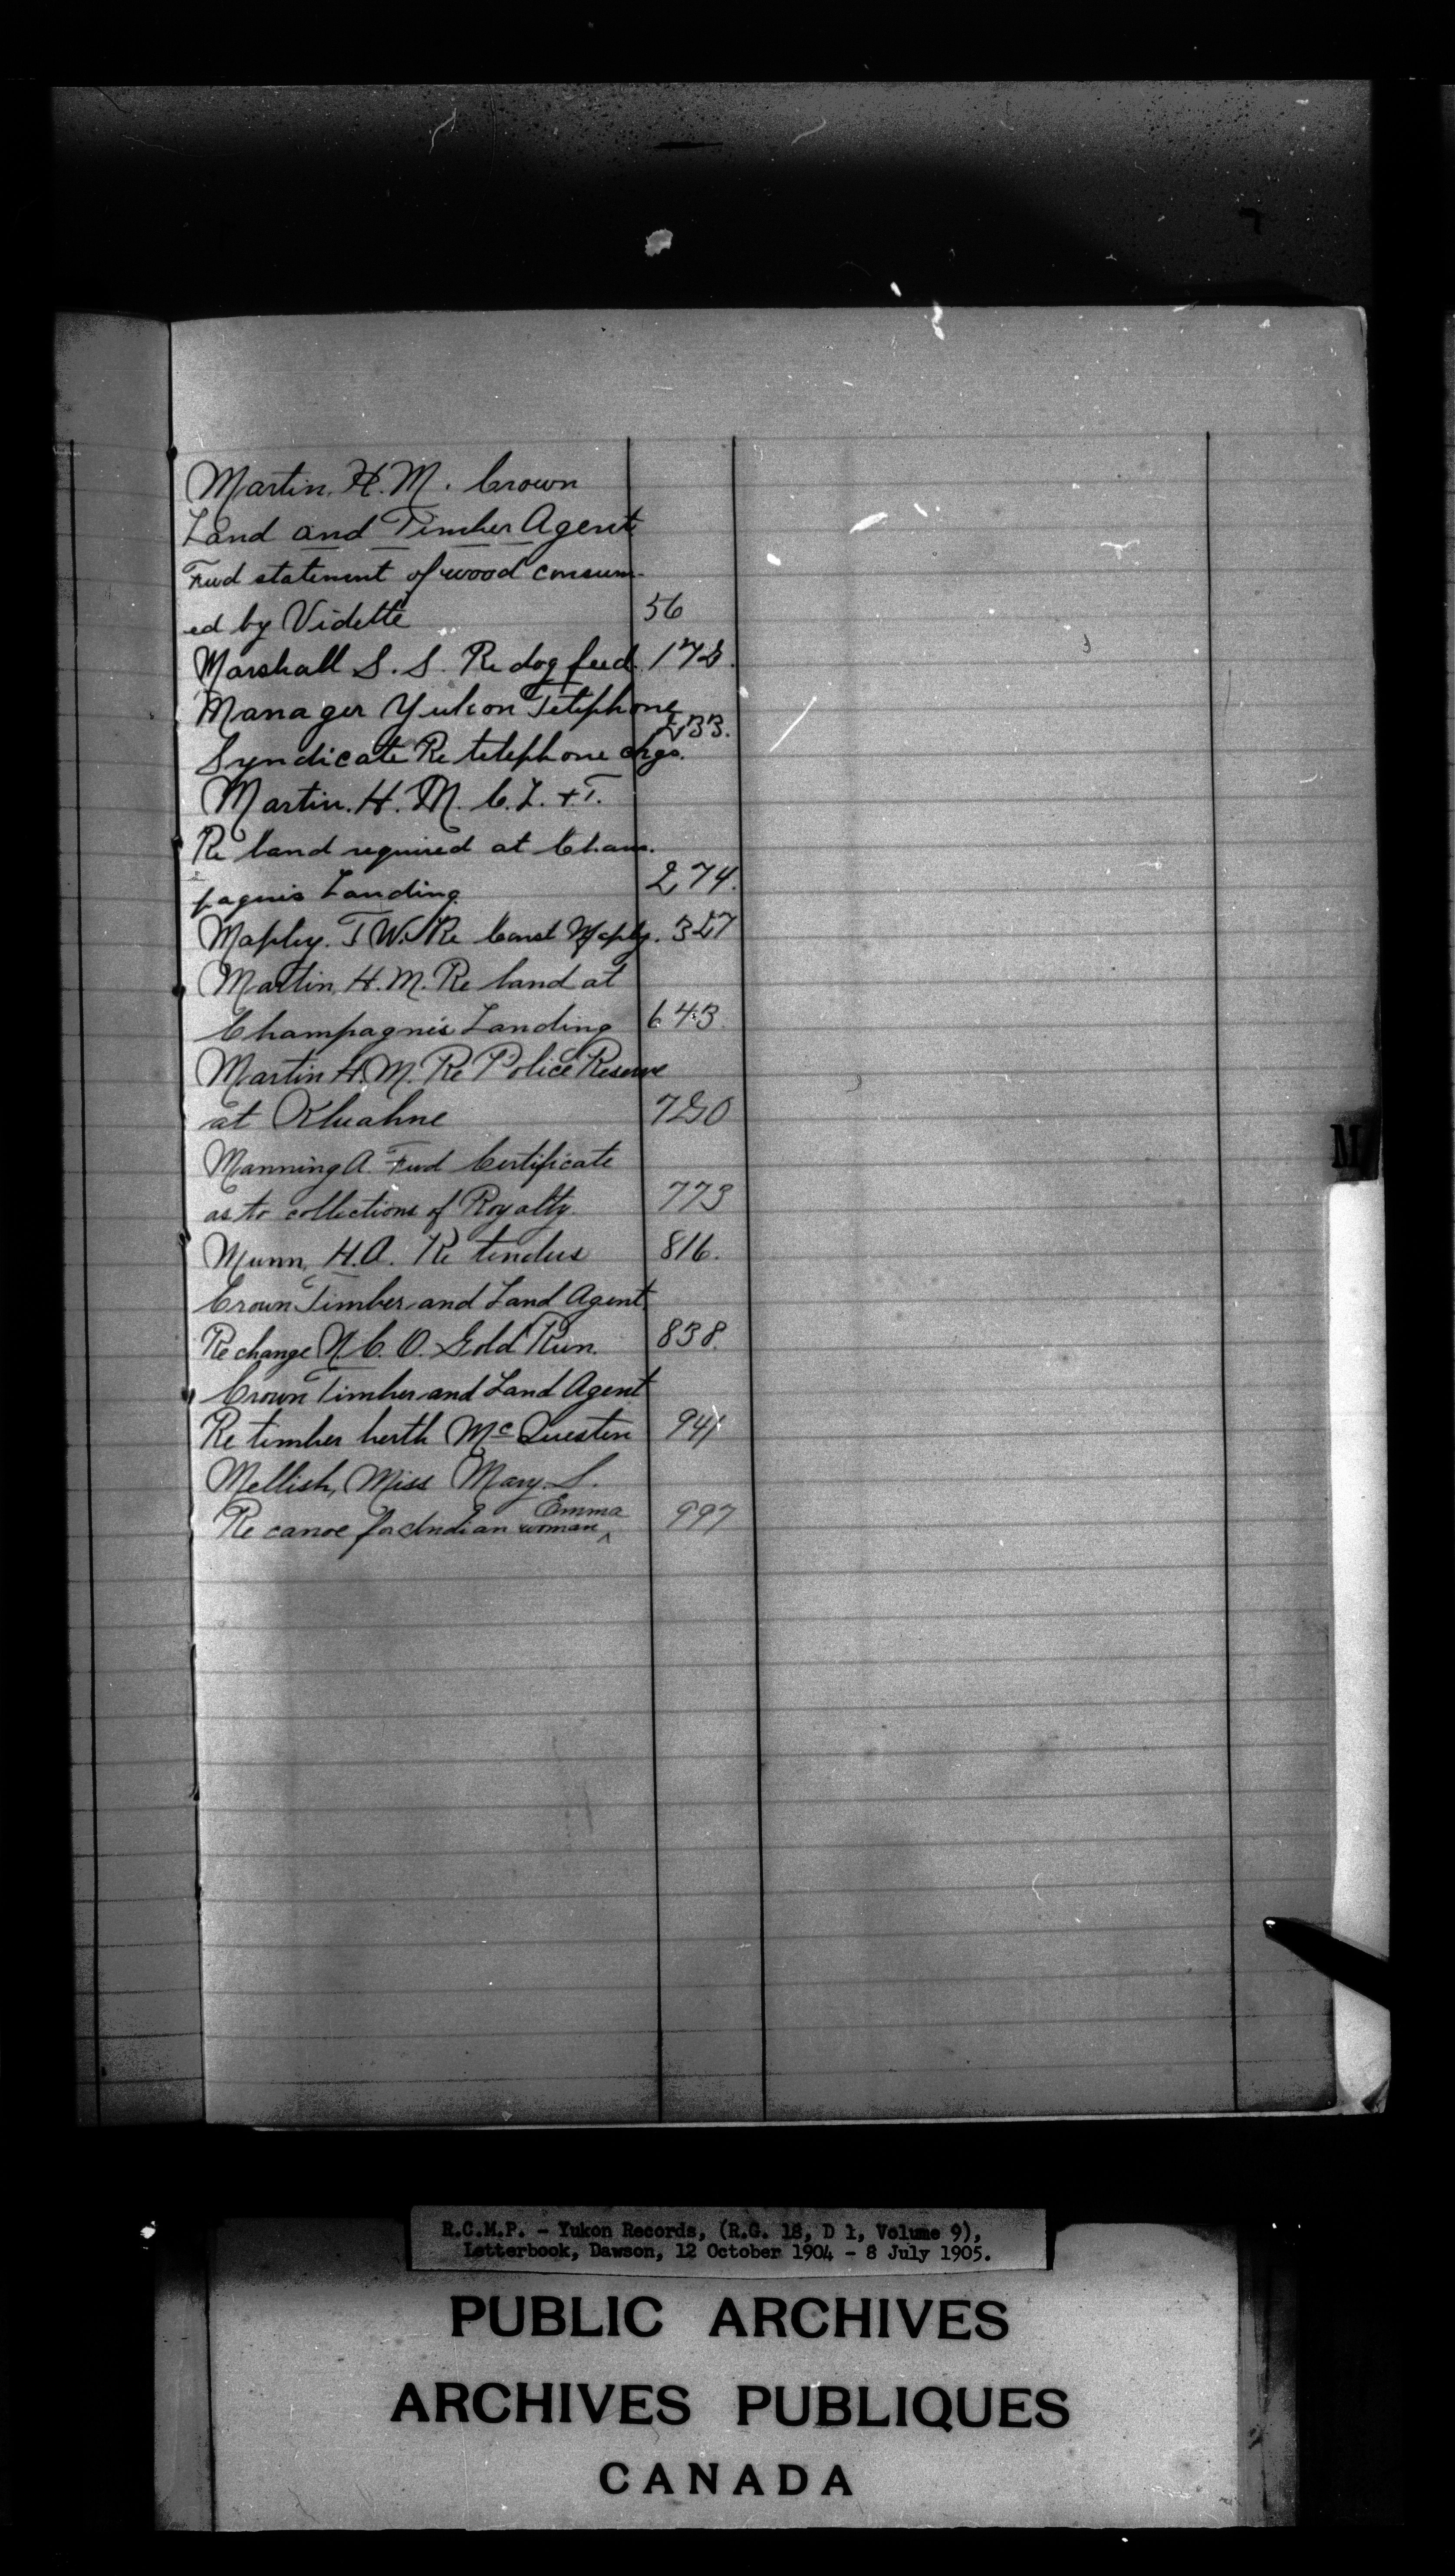 Martin. H. M. Crown
Land and Timber Agent
Fwd statement of wood consum-
ed by Vidette 56
Marshall S. S. Re dog feed 178.
Manager Yukon Telephone
Syndicate Re telephone chgs. 233.
Martin. H. M. C. L. & T.
Re land required at Cham-
pagnes Landing 274.
Mapley. T W. Re Const Mapley. 327
Martin, H. M. Re land at
Champagnes Landing 643
Martin H. M. Re Police Reserve
at Kluahne 750
Manning A. Fwd Certificate
as to collections of Royalty. 773
Munn, H.A. Re tenders 816.
Crown Timber and Land Agent
Re change N. C. O. Gold Run. 838.
Crown Timber and Land Agent
Re timber berth McQuesten 941
Mellish, Miss Mary S.
Re canoe for Indian woman Emma 997
M
R.C.M.P. - Yukon Records, (R.G. 18, D 1, Volume 9),
Letterbook, Dawson, 12 October 1904 - 8 July 1905.
PUBLIC ARCHIVES
ARCHIVES PUBLIQUES
CANADA